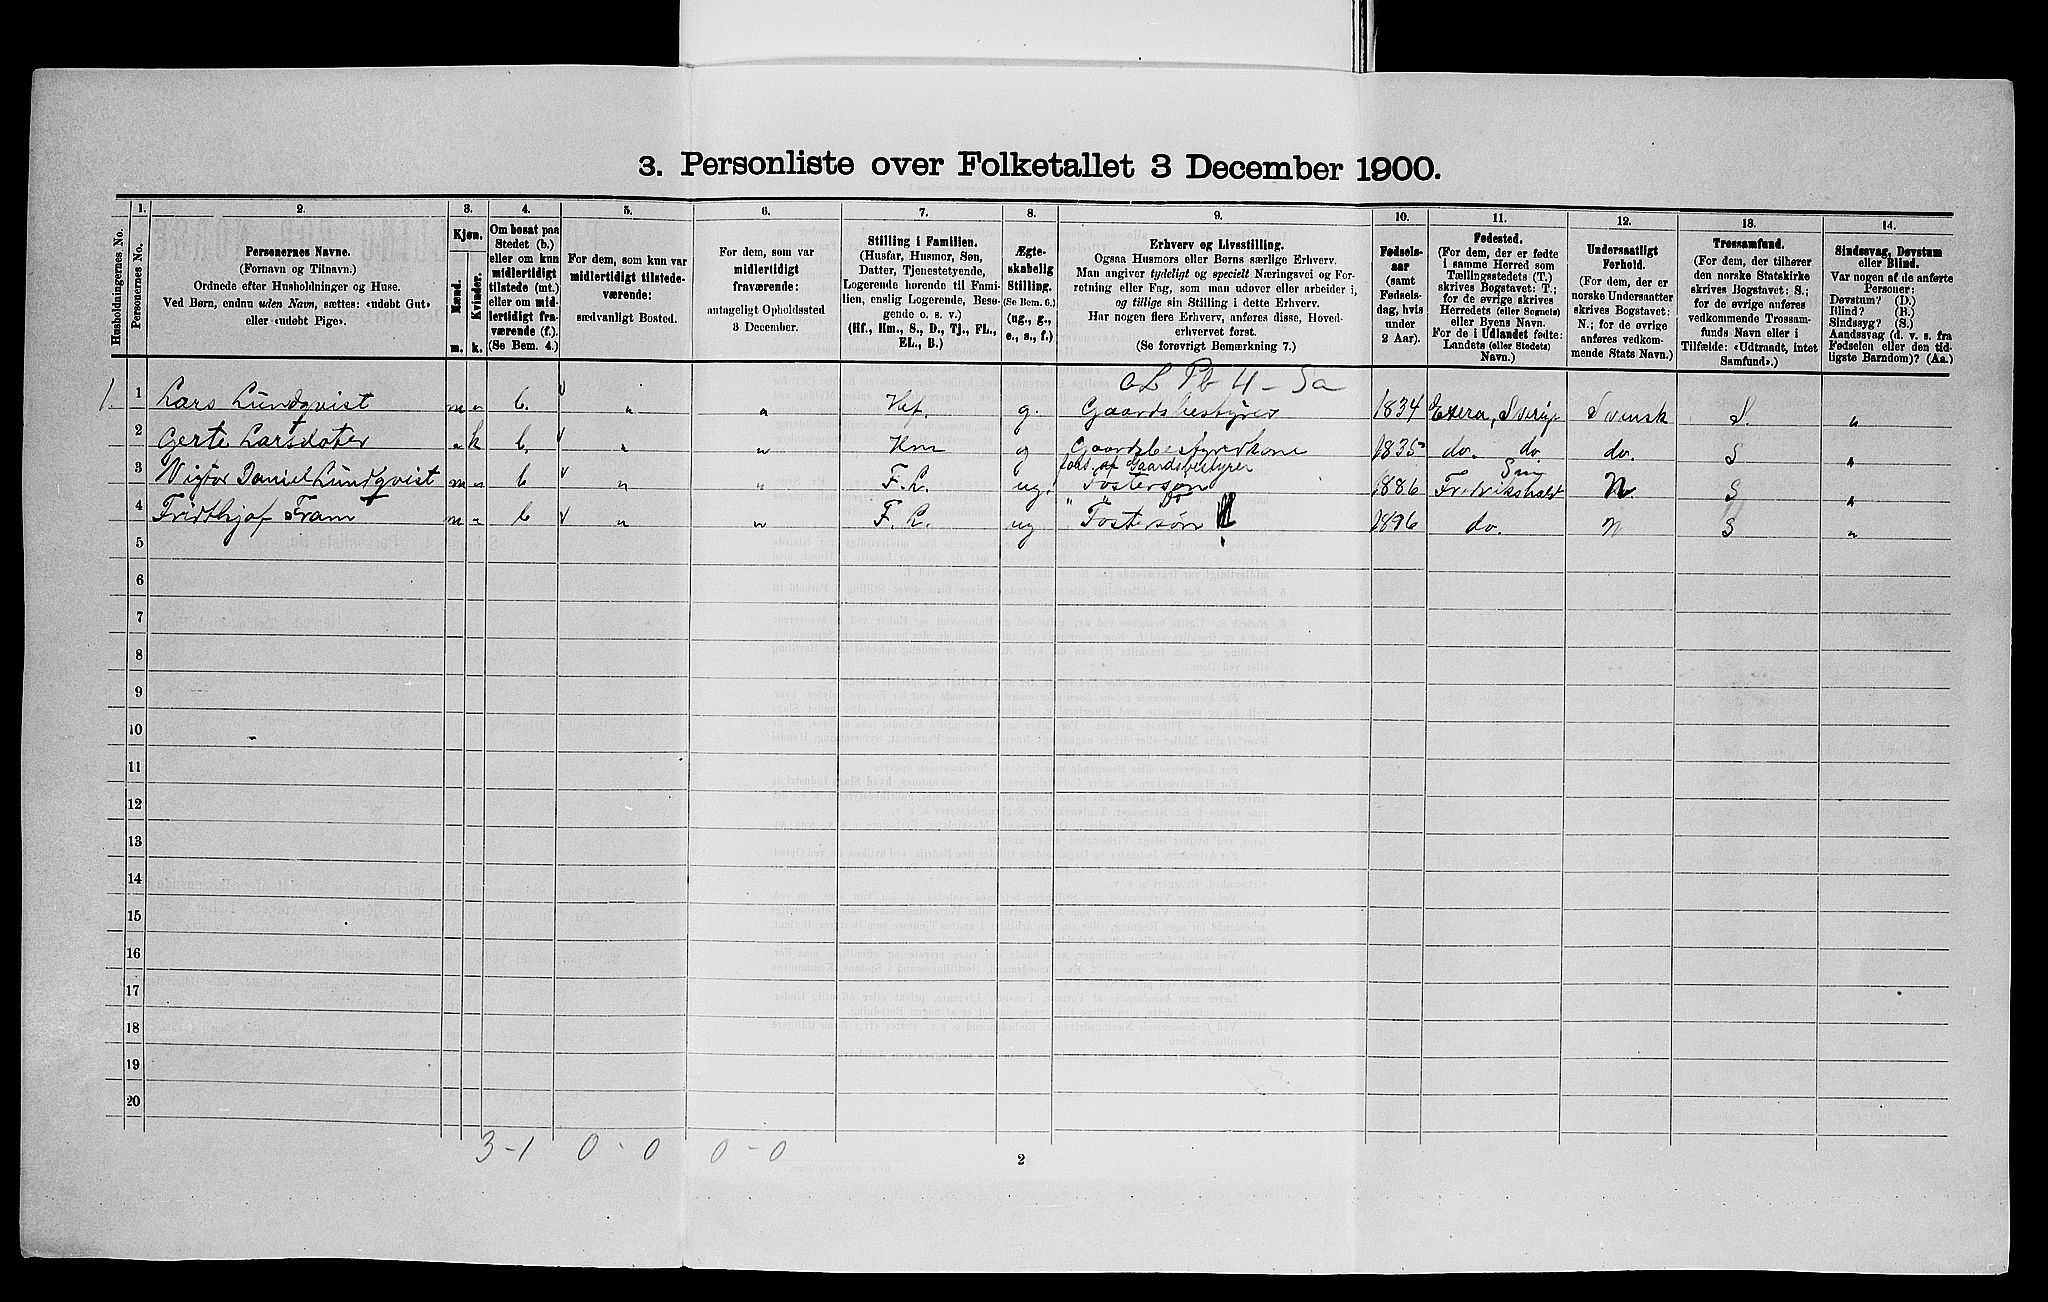 3. Personliste over Folketallet 3 December 1900.
Husholdningernes No.
1.
Personernes No.
2.
Personernes Navne.
(Fornavn og Tilnavn.)
Ordnede efter Husholdninger og Huse.
Ved Børn, endnu uden Navn, sættes: «udøbt Gut»
eller «udøbt Pige».
3.
Kjøn.
Mænd.
Kvinder.
m.
k.
4.
Om bosat paa
Stedet (b.)
eller om kun
midlertidigt
tilstede (mt.)
eller om mid-
lertidigt fra-
værende (f.)
(Se Bem. 4.)
5.
For dem, som kun var
midlertidigt tilstede-
værende:
sædvanligt Bosted.
6.
For dem, som var
midlertidigt
fraværende:
antageligt Opholdssted
3 December.
7.
Stilling i Familien.
(Husfar, Husmor, Søn,
Datter, Tjenestetyende,
Logerende hørende til Fami-
lien, enslig Logerende, Besø-
gende o. s. v.)
(Hf., Hm., S., D., Tj., FL.,
EL., B.)
8.
Ægte-
skabelig
Stilling.
(Se Bem. 6.)
(ug., g.,
e., s., f.)
9.
Erhverv og Livsstilling.
Ogsaa Husmors eller Børns særlige Erhverv.
Man angiver tydeligt og specielt Næringsvei og For-
retning eller Fag, som man udøver eller arbeider i,
og tillige sin Stilling i dette Erhverv.
Har nogen flere Erhverv, anføres disse, Hoved-
erhvervet først.
(Se forøvrigt Bemærkning 7.)
10.
Fødsels-
aar
(samt
Fødsels-
dag, hvis
under
2 Aar).
11.
Fødested.
(For dem, der er fødte
i samme Herred som
Tællingsstedets (T.)
skrives Bogstavet: T.;
for de øvrige skrives
Herredets (eller Sognets)
eller Byens Navn.
For de i Udlandet fødte:
Landets (eller Stedets)
Navn.)
12.
Undersaatligt
Forhold.
(For dem, der er
norske Undersaatter
skrives Bogstavet:
N.; for de øvrige
anføres vedkom-
mende Stats Navn.)
13.
Trossamfund.
(For dem, der tilhører
den norske Statskirke
skrives Bogstavet: S.;
for de øvrige anføres
vedkommende Trossam-
funds Navn eller i
Tilfælde: «Udtraadt, intet
Samfund».)
14.
Sindssvag, Døvstum
eller Blind.
Var nogen af de anførte
Personer:
Døvstum? (D.)
Blind? (B.)
Sindssyg? (S.)
Aandssvag (d. v. s. fra
Fødselen eller den tid-
ligste Barndom)? (Aa.)
1. 1 Lars Lundqvist m " b. " " Hf. g. Gaardsbestyrer 1834 Sverige Svensk S. "
2 Gerte Larsdater " k b. " " Hm g Gaardsbestyrerkone 1835 do. do do. S "
3 Vigtor Daniel Lundqvist m " b " " F. L. ug. Fostersøn af Gaardsbestyrer 1886 Fredrikshald N. S "
4 Fridthjof Fram m " b " " F. L. ug " Fostersøn Do 1896 do. N S "
5
6
7
8
9
10
11
12
13
14
15
16
17
18
19
20
3-1 0-0 0-0
2